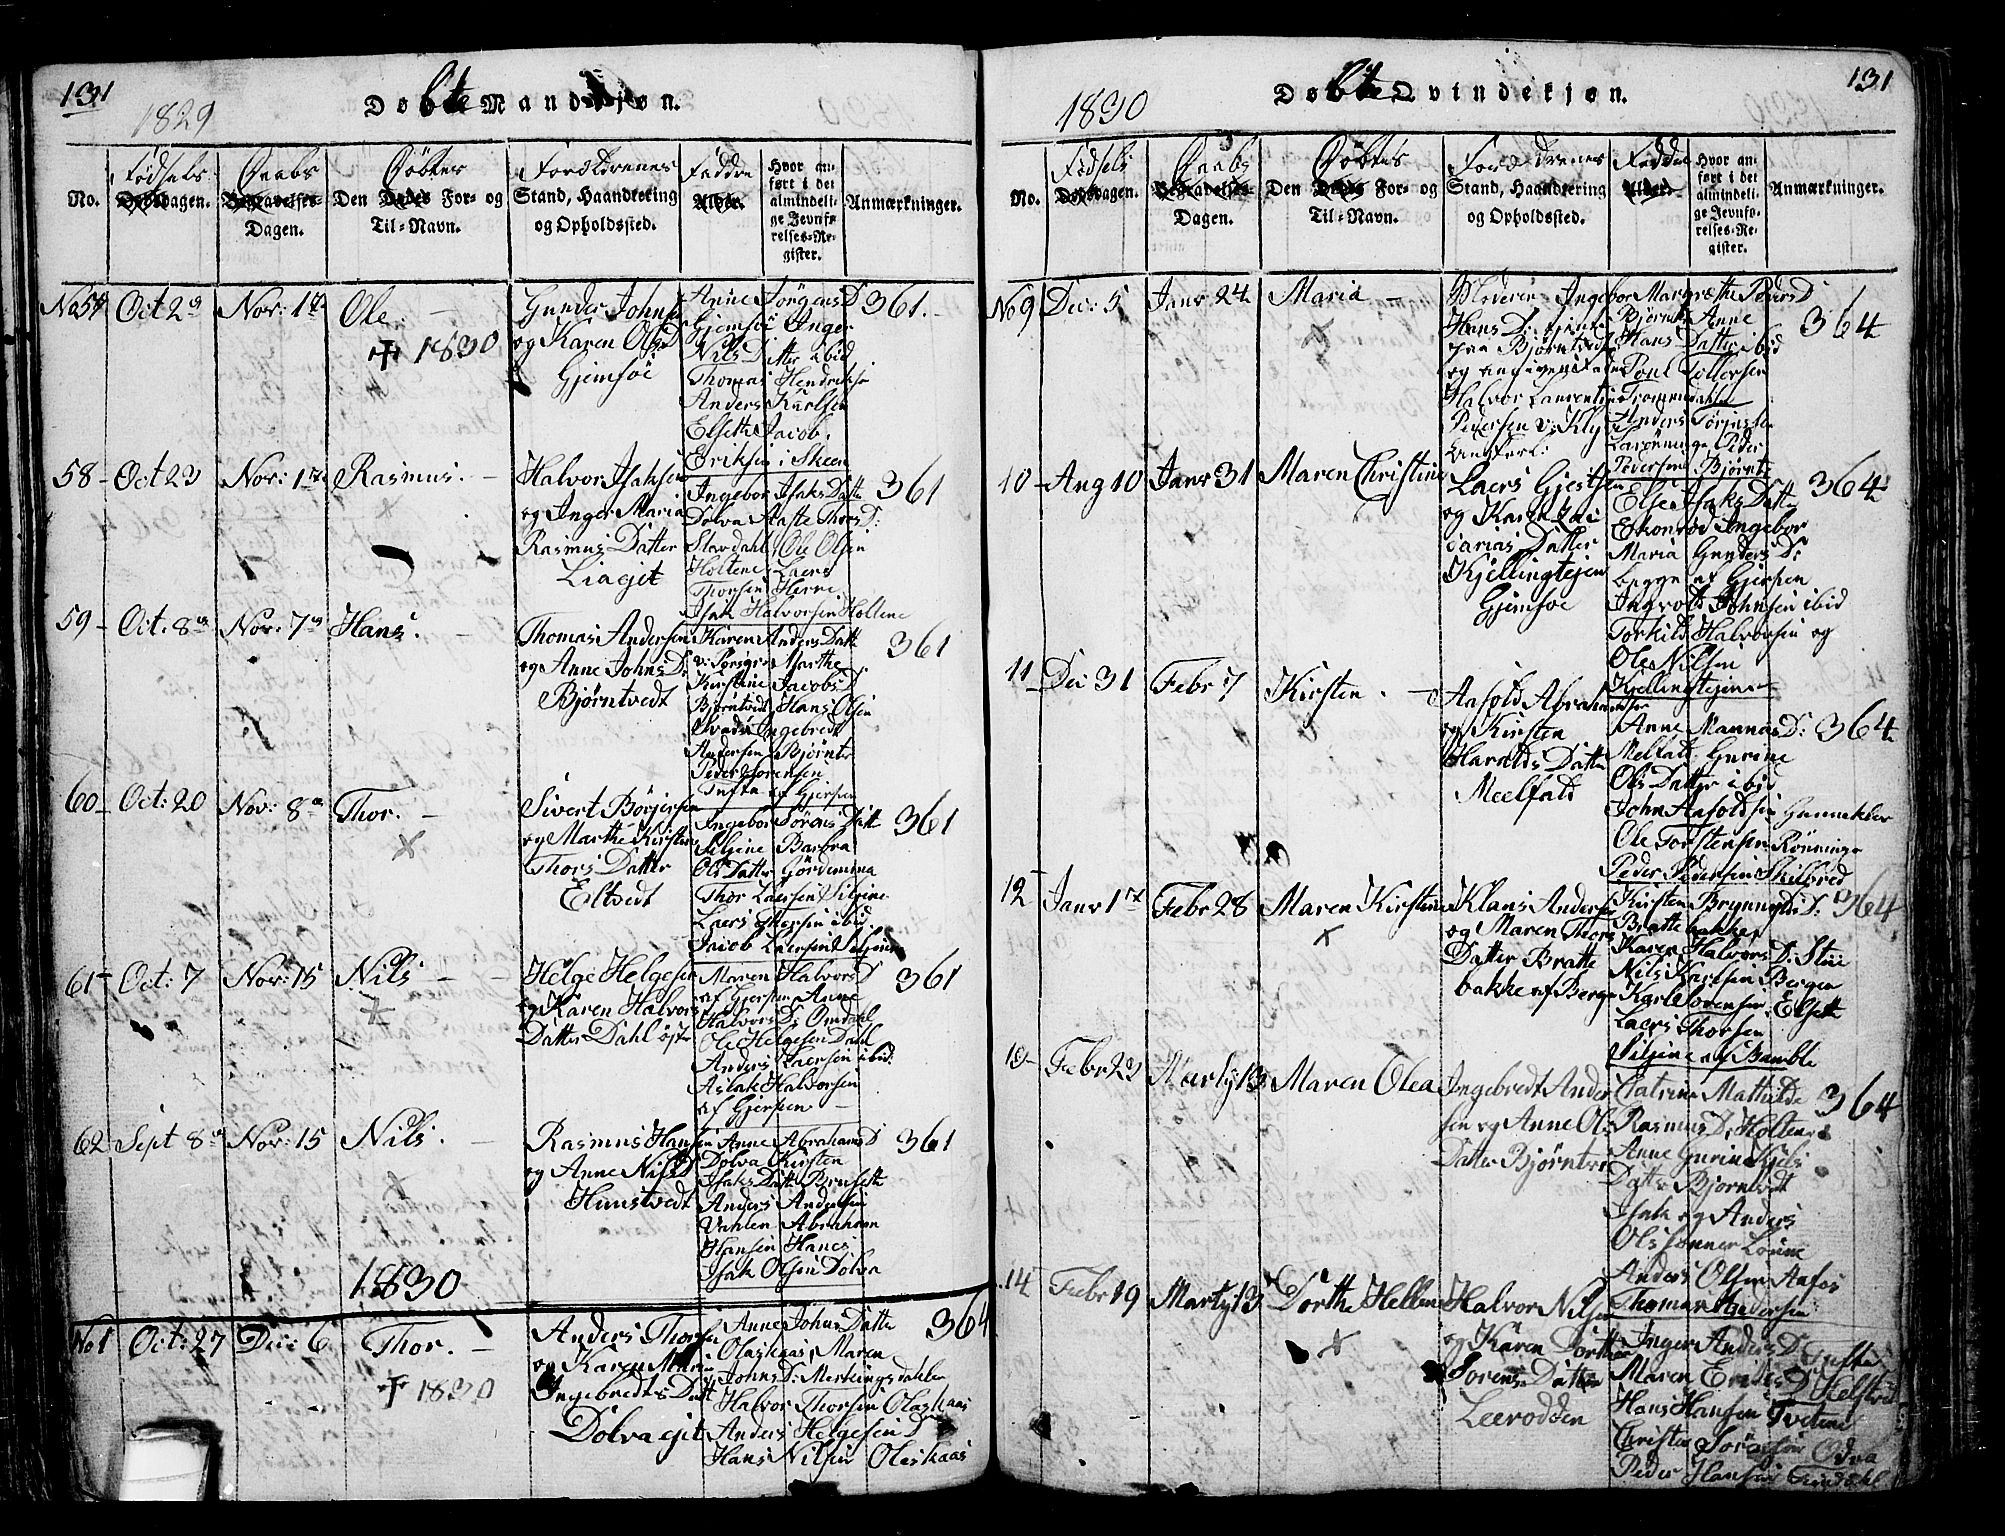 131
1829
Døbte Mandkjøn.
No.
Fødsels Dagen.
Daabs Dagen.
Den Døbtes For- og Til-Navn.
Forældrenes Stand, Haandtering og Opholdssted.
Faddre
Hvor anført i det almindelige Jevnførelses-Register.
Anmærkninger.
No 57 Oct 29 Nov: 1te Ole. –
✝ 1830
Gunder Johnsen
og Karen Ols D
Gjemsøe
Anne Jørgens D
Gjemsøe Inger
Nils Datter ibid
Thomas Hendriksen
Anders Karlsen
Elseth Jacob
Eriksen i Skeen
361.
58 – Oct 23 Nov: 1te Rasmus. –
Halvor Isaksen
og Inger Maria
Rasmus Datter
Liaejet
Ingebor Isaks Datter
Dolva Aaste Thors D:
Slavdahl Ole Olsen
Holtene Laers
Thorsen Herre
Isak Halvorsen Holtene
361
59 – Oct: 8de Nov: 7de Hans. –
Thomas Andersen
og Anne Johns D:
Bjørntvedt
Karen Anders Datt
v: Porsgr: Marthe
Kirstine Jacobs D
Bjørntvedt Hans Olsen
Ingebredt
Andersen Bjørntv
Peder Sørensen
Tufte af Gjerpen
361
60 – Oct: 20 Nov: 8de Thor. –
Sivert Børjersen
og Marthe Kirstine
Thors Datter
Eltvedt
Ingebor Sørens Datt
Siljine Barbra
Ols Datter Gördemina
Thor Laersen Siljine
Laers Ottersen ibid
Jacob Laersen Siljine
361
61 – Oct: 7 Nov: 15 Nils – –
Helge Helgesen
og Karen Halvors
Datter Dahl øst
Maren Halvors D
af Gjerpen Anne
Halvors D: Omdahl
Ole Helgesen Dahl
Anders Laersen ibid:
Aslak Halvorsen
af Gjerpen –
361
62 Sept 8de Nov: 15 Nils. –
Rasmus Hansen
og Anne Nils D
Hunstvedt
Anne Abrahams D
Dolva Kirsten
Isaks Datt Bruseth
Anders Andersen
Vahlen Abraham
Hansen Hanes
Isak Olsen Dolva
361
1830
No 1 Oct: 27 Dec: 6 Thor. –
✝ 1830
Anders Thorsen
og Karen Maria
Ingebredts Datt
Dolva ejet
Anne Johns Datte
Olaskaas Maren
Johns D: Mertingsdahlen
Halvor Thorsen Olaskaas
Anders Helgesen D
Hans Nilsen Olaskaas
364
131
1830
Døbte Qvindekjøn.
No.
Fødsels Dagen.
Daabs Dagen.
Den Døbtes For- og Til-Navn.
Forældrenes Stand, Haandtering og Opholdssted.
Faddre
Hvor anført i det almindelige Jevnførelses-Register.
Anmærkninger.
No 9 Dec: 5 Janr 24 Maria –
Hans D: tjenende
paa Bjørntvedt
og angiven Fader
Halvor Laurentius
Pedersen v: Kly
Ingebor Margrethe Peders D
Bjørntv: Anne
Hans Datter ibid
Poul Tollersen
Trommedahlen
Anders Sørensen
Peder
Pedersen Bjørnt
364
10 – Aug 10 Janr 31 Maren Christine
Laers Gjestsen
og Karen Zacarias Datter
Kjellingtejen
Gjemsøe
Else Isaks Datter
Eskonrød Ingebor
Maria Gunders D:
begge af Gjerpen
Ingvold Johnsen ibid
Torkild Halvorsen og
Ole Nilsen
Kjellingtejen
364
11 – Dec 31 Febr 7 Kirsten. –
Aasold Abrahamsen
og Kirsten
Haralds Datter
Meelfald
Anne Mannas D:
Melfald Gurine
Ols Datter ibid
John Aasoldsen Gunneklev
Ole Torstensen Rønninge
Peder Pedersen Skilbred
364
12 – Janr 17 Febr 28 Maren Kirstine
Klaus Andersen
og Maren Thors
Datter Bratte
bakke af Berge
Kirsten Brynnulds D:
Brattebakken
Karen Halvors D: Stue
Nils Karlsen Bergen
Karl Sørensen Elseth
Laers Thorsen
Siljine af Bamble
364
13 – Febr 23 Marty 13 Maren Olea
Ingebredt Andersen og Anne Ols
Datter Bjørntv
Catrine Mathilde
Rasmus D: Holtene
Anne Gurine Kjels
Datter Bjørntvedt
Isak og Anders
Ols sønner Lønne
Anders Olsen Aafos
Thomas Andersen
364
14 – Febr 19 Marty 13 Dorthe Hellene
Halvor Nilsen
og Karen Dorthea
Sørens Datter
Leerodden
Inger Anders D: Tufte
Maren Eriks D Kelsrød
Hans Hansen Tvetene
Christen Sörensen Odna
Peder Hansen